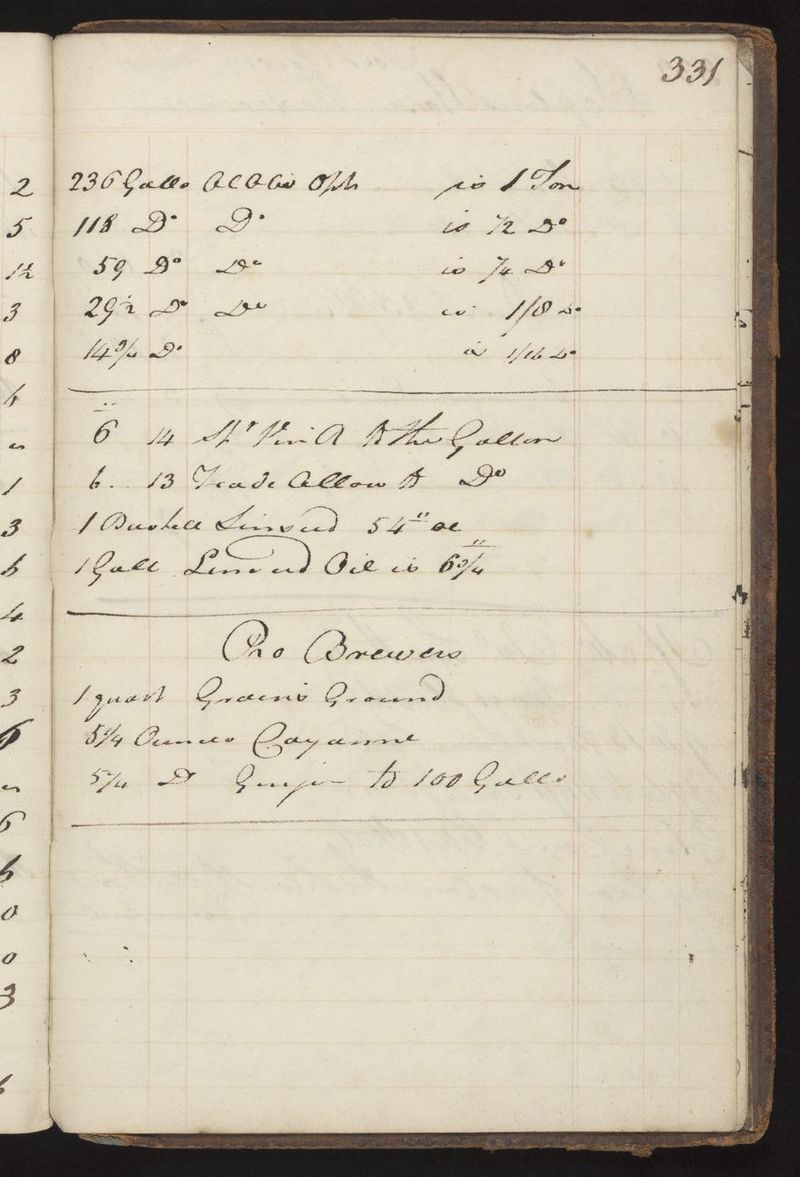 331
236 Galls is 1 Ton
118 Do Do is 1/2 Do
59 Do Do is 1/4 Do
29 1/2 Do Do is 1/8 Do
14 3/4 Do is 1/16 Do
6 14 to the Gallon
6. 13 Trade allow to Do
1 Bushell Linseed 54"
1 Gall Linseed Oil is 6 3/4
Pro Brewers
1 quart Grains Ground
5 1/4 Ounces Cayanne
5 1/4 Do Ginger to 100 Galls
2
5
1 1/2
3
8
6
"
1
3
6
4
2
3
6
"
6
0
0
3